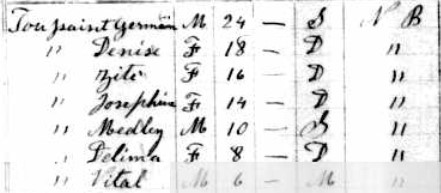 Toussaint Germain M 24 — S N B
" Denise F 18 — D "
" Zite F 16 — D "
" Josephine F 14 — D "
" Medley M 10 — S "
" Delima F 8 — D "
" Vital M 6 — M "